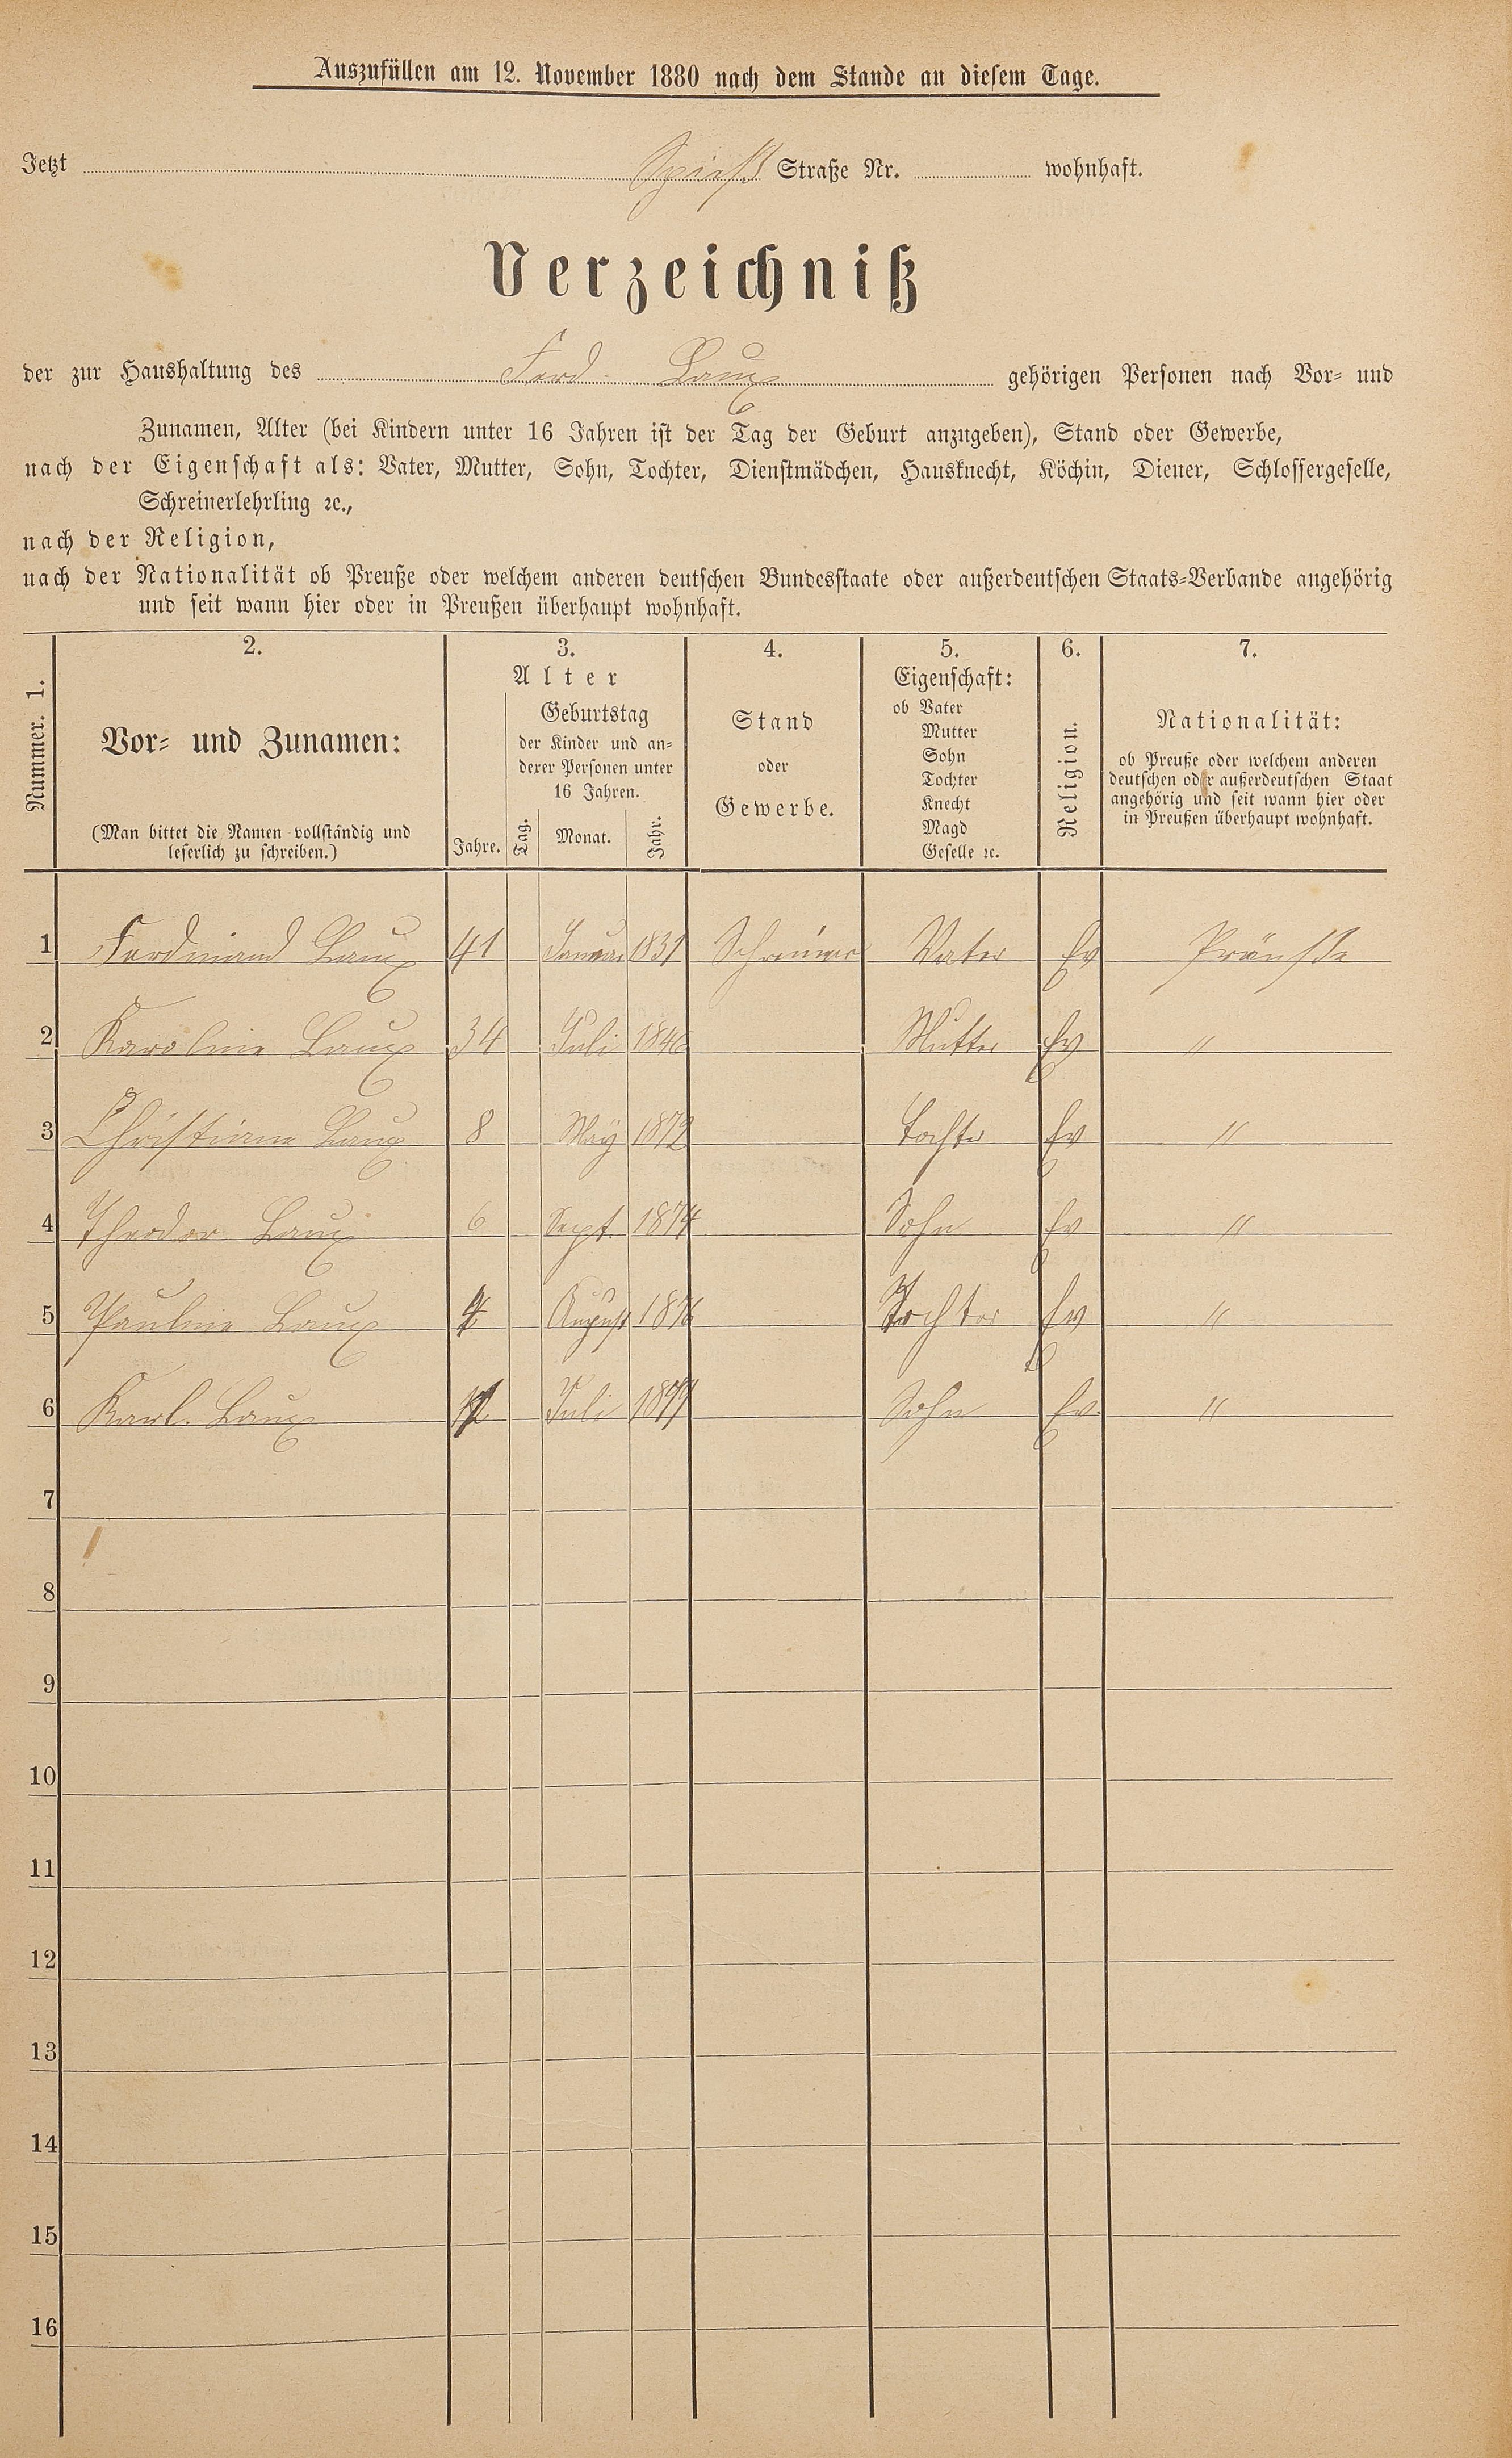 Auszufüllen am 12. November 1880 nach dem Stande an diesem Tage.
Jetzt Spieß Straße Nr. wohnhaft.
Verzeichniß
der zur Haushaltung des Ferd. Laux gehörigen Personen nach Vor- und
Zunamen, Alter (bei Kindern unter 16 Jahren ist der Tag der Geburt anzugeben), Stand oder Gewerbe,
nach der Eigenschaft als: Vater, Mutter, Sohn, Tochter, Dienstmädchen, Hausknecht, Köchin, Diener, Schlossergeselle,
Schreinerlehrling ꝛc.,
nach der Religion,
nach der Nationalität ob Preuße oder welchem anderen deutschen Bundesstaate oder außerdeutschen Staats-Verbande angehörig
und seit wann hier oder in Preußen überhaupt wohnhaft.
Nummer. 1.
2.
Vor- und Zunamen:
(Man bittet die Namen vollständig und
leserlich zu schreiben.)
3.
Alter
Jahre.
Geburtstag
der Kinder und an-
derer Personen unter
16 Jahren.
Tag. Monat. Jahr.
4.
Stand
oder
Gewerbe.
5.
Eigenschaft:
ob Vater
Mutter
Sohn
Tochter
Knecht
Magd
Geselle ꝛc.
6.
Religion.
7.
Nationalität:
ob Preuße oder welchem anderen
deutschen oder außerdeutschen Staat
angehörig und seit wann hier oder
in Preußen überhaupt wohnhaft.
1 Ferdinand Laux 41 Januar Schreiner Vater Ev Präuße
2 Karoline Laux 34 Juli 1846 Mutter Ev "
3 Christiane Laux 8 May 1872 Tochter Ev "
4 Theodor Laux 6 Sept. 1874 Sohn Ev "
5 Pauline Laux 4 August 1876 Tochter Ev "
6 Karl. Laux Juli Sohn Ev. "
7
8
9
10
11
12
13
14
15
16